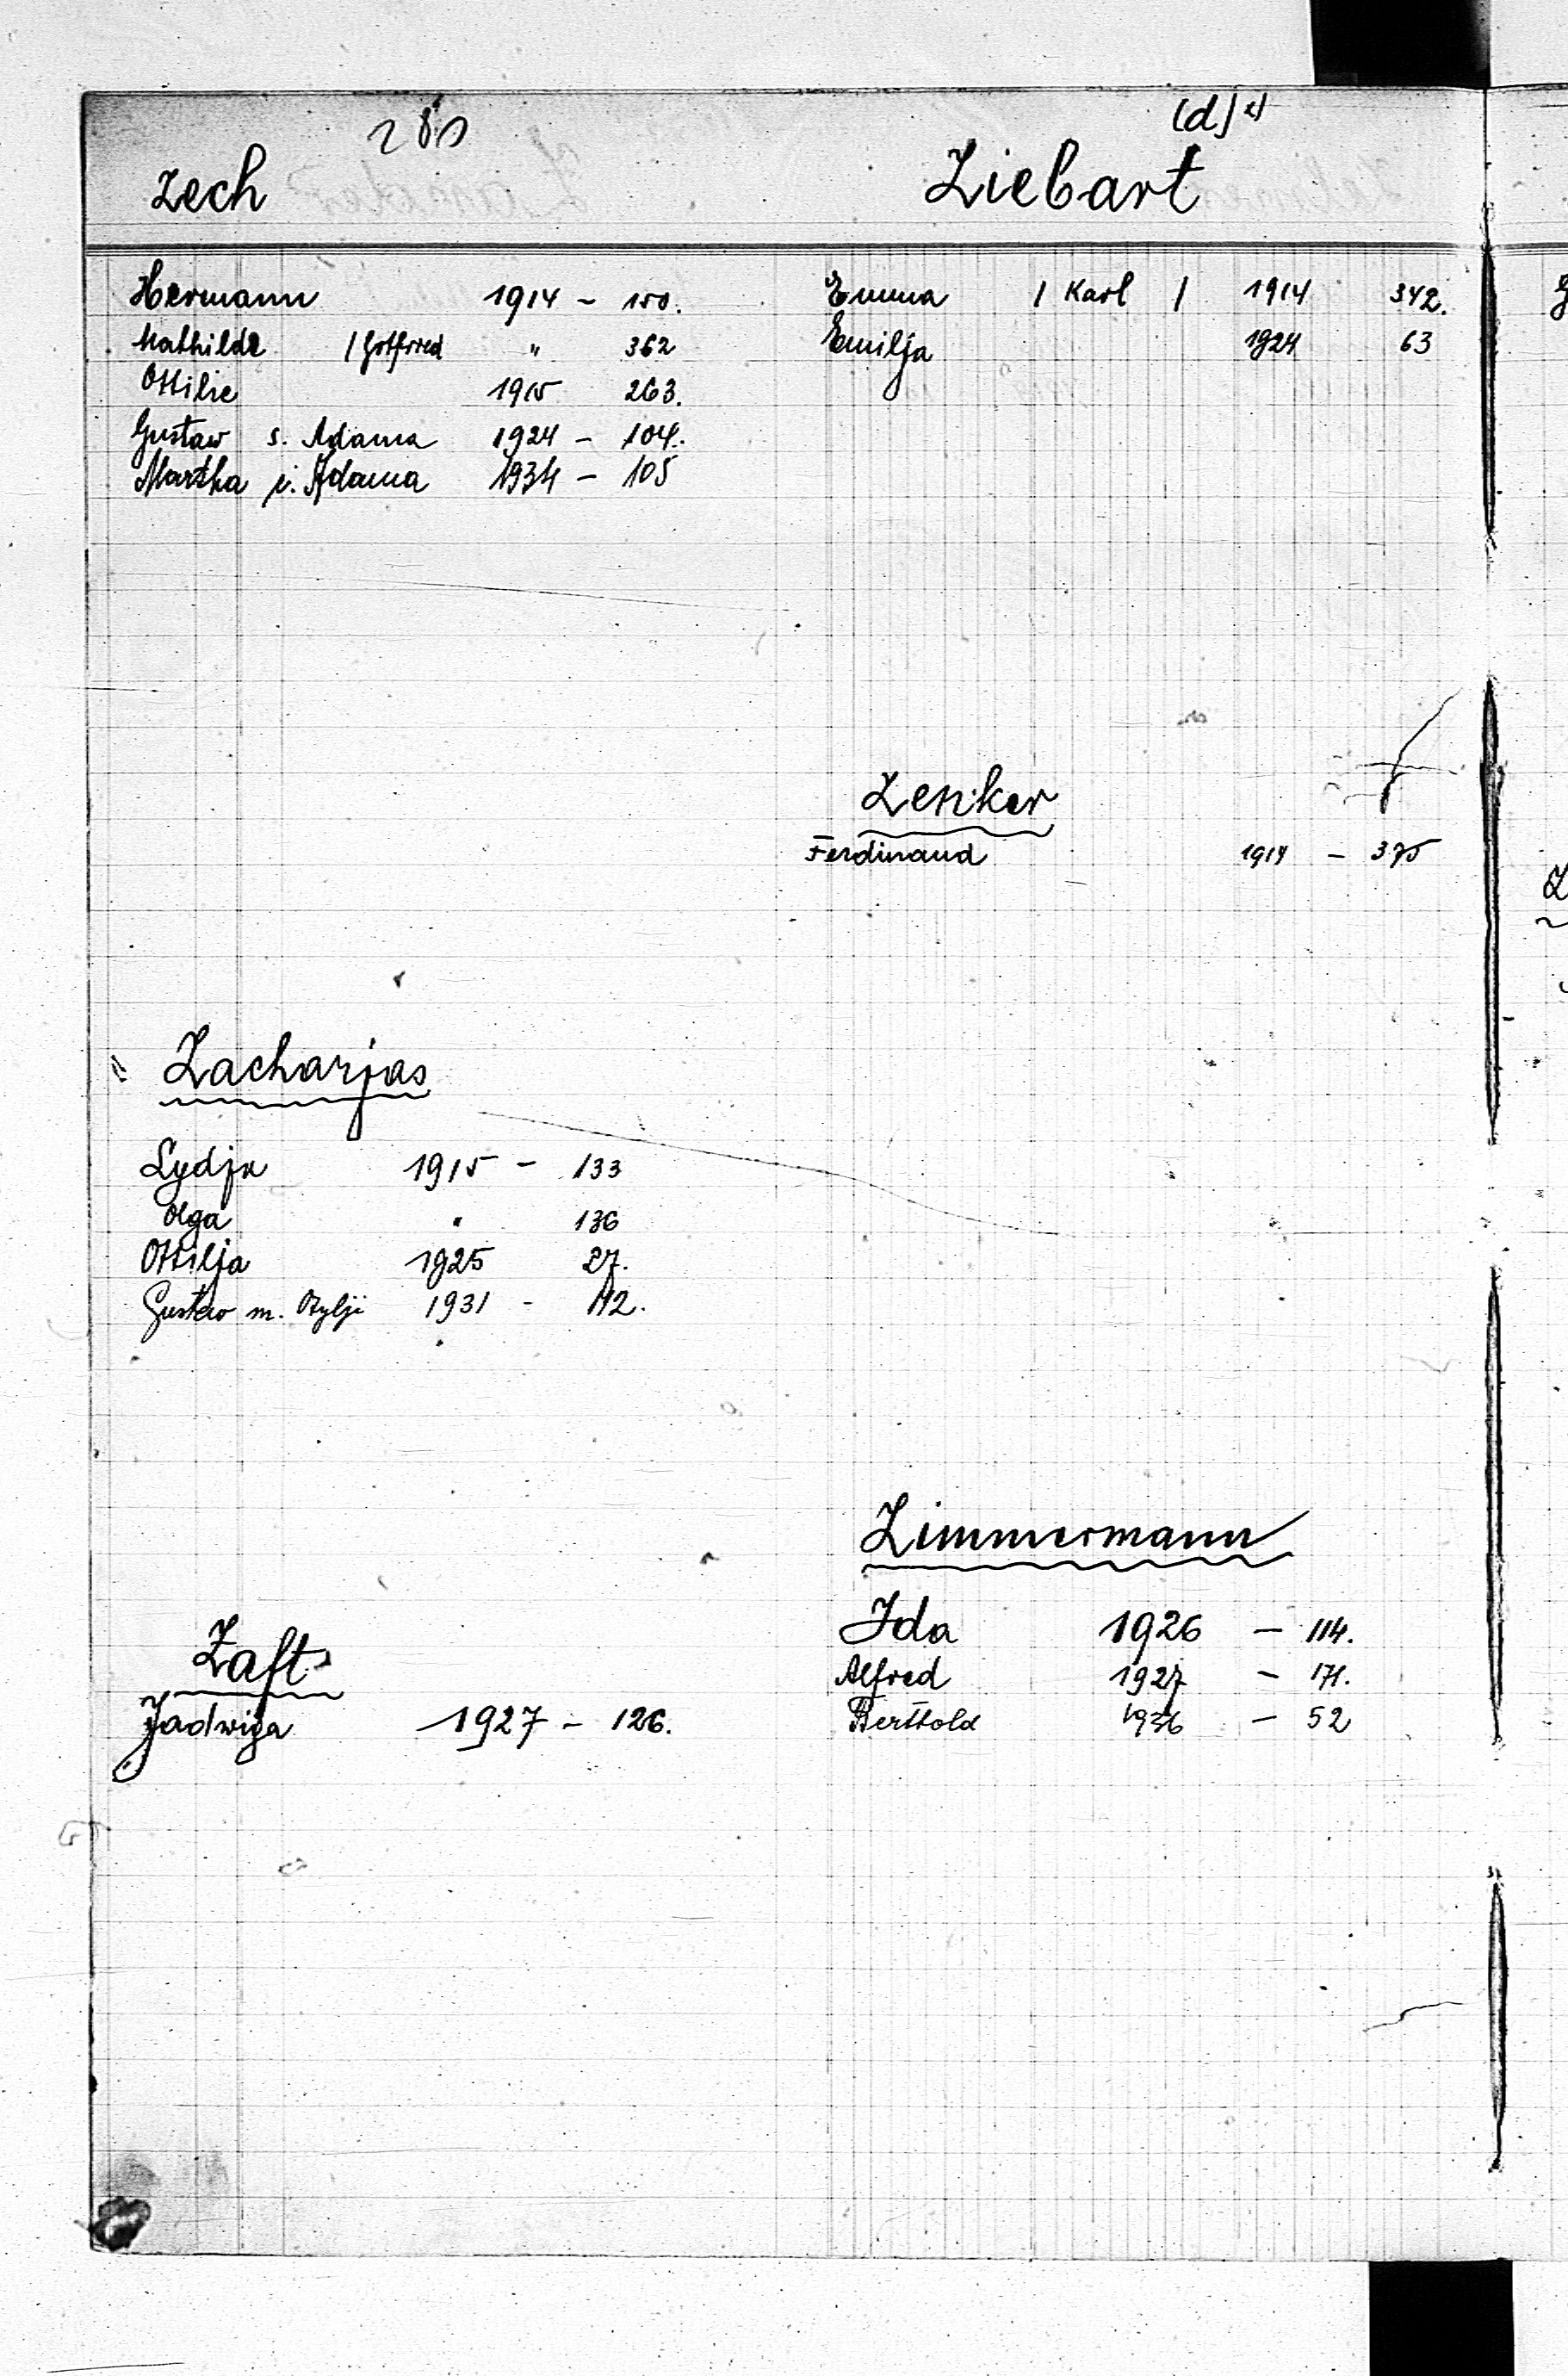 Zech
Hermann 1914 - 150.
Mathilde / Gotfried " 362
Ottilie 1915 263.
Gustaw s. Adama 1924 - 104.
Martha ż. Adama 1934 - 105
Zacharjas
Lydja 1915 - 133
Olga " 136
Ottilja 1925 27.
Gustaw m. Otylji 1931 - 112.
Zaft
Jadwiga 1927 - 126.
(d)
Ziebart
Emma / Karl / 1914 342.
Emilja 1924 63
Zenker
Ferdinand 1914 - 375
Zimmermann
Ida 1926 - 114.
Alfred 1927 - 171.
Berthold 1936 - 52